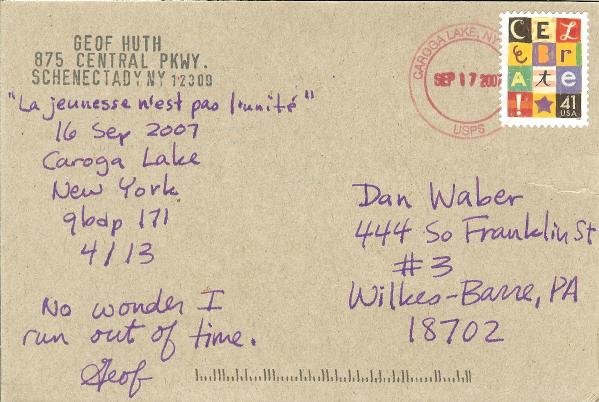 GEOF HUTH
875 CENTRAL PKWY.
SCHENECTADY NY 12309
"La jeunesse n'est pas l'unité"
16 Sep 2007
Caroga Lake
New York
qbdp 171
4/13
No wonder I
run out of time.
Geof
CAROGA LAKE, NY
SEP 17 2007
USPS
CEL
EBR
Ate
!★
41
USA
Dan Waber
444 So Franklin St
#3
Wilkes-Barre, PA
18702